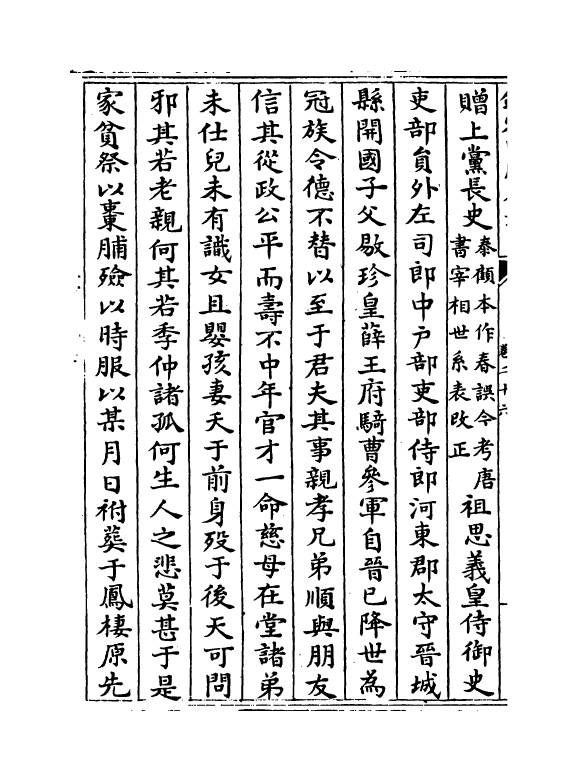 贈上黨長史泰顧本作春誤今考唐書宰相世系表改正祖思義皇侍御史
吏部員外左司郎中户部吏部侍郎河東郡太守晉城
縣開國子父敭珍皇薛王府騎曹參軍自晉已降世為
冠族令德不替以至于君夫其事親孝兄弟順與朋友
信其從政公平而壽不中年官才一命慈母在堂諸弟
未仕兒未有識女且嬰孩妻夭于前身歿于後天可問
邪其若老親何其若季仲諸孤何生人之悲莫甚于是
家貧祭以棗脯殮以時服以某月日祔葬于鳳棲原先